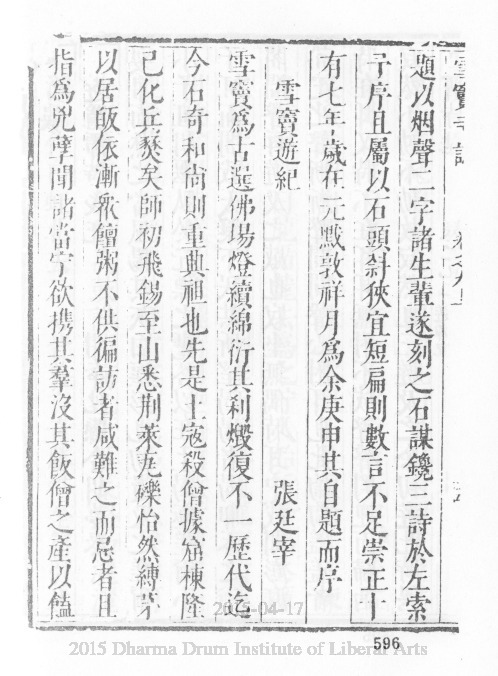 雪竇寺誌
題以烟聲二字諸生輩遂刻之石謀鑱三詩於左索
予序且屬以石頭斜狹宜短扁則數言不足崇正十
有七年歲在元黓敦祥月為余庚申其自題而序
雪竇遊紀 張廷宰
雪竇為古選佛場燈續綿衍其剎燬復不一歷代迄
今石奇和尚則重典祖也先是土寇殺僧據窟棟隆
已化兵燹矣師初飛錫至山悉荆萊尫礫怡然縛茅
以居皈依漸衆饘粥不供徧訪者咸難之而忌者且
指為兇孽聞諸當宁欲携其羣沒其飯僧之產以饁
2015-04-17
596
2015 Dharma Drum Institute of Liberal Arts